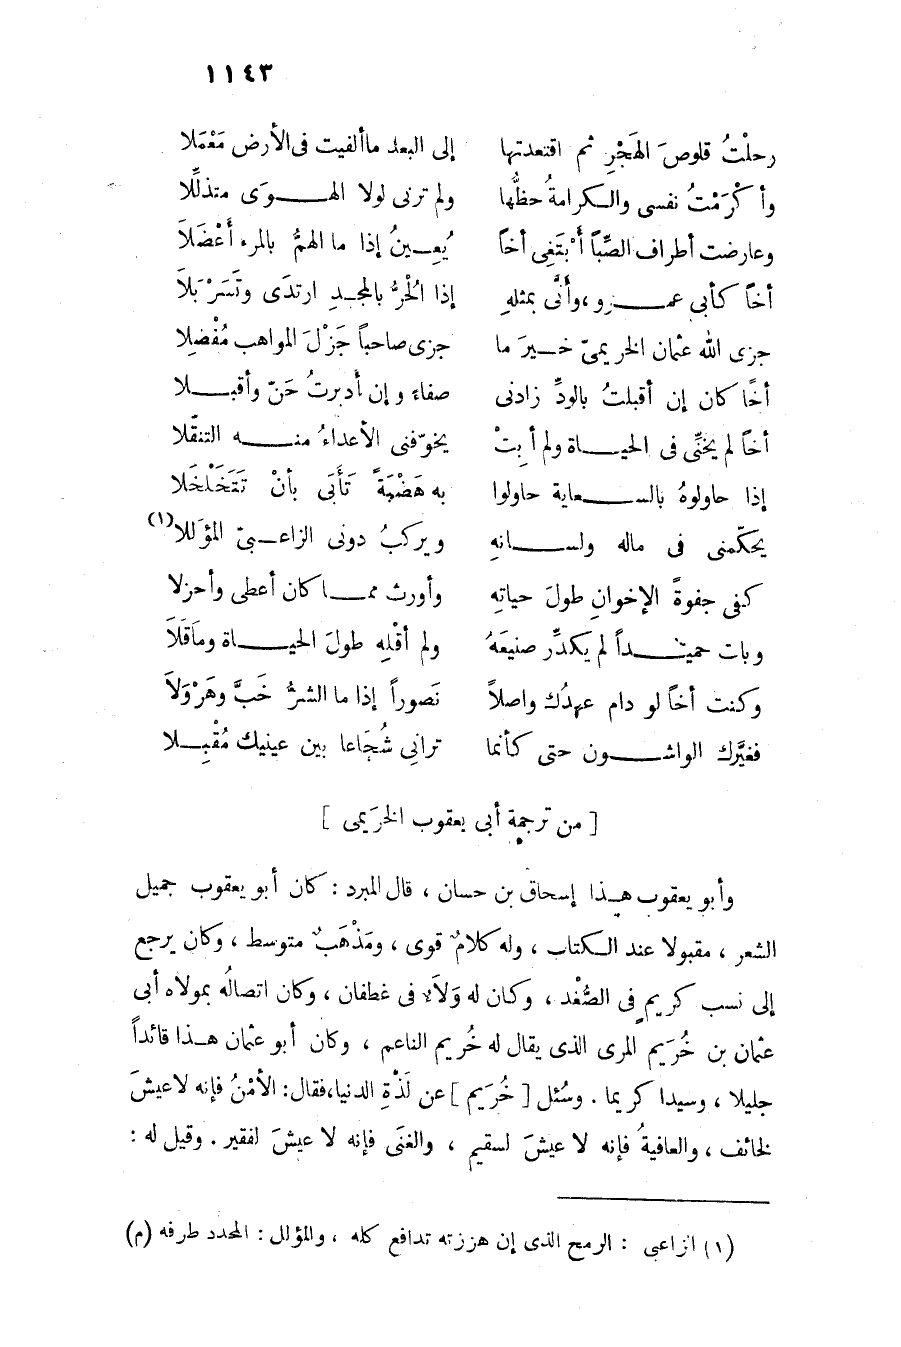 ١١٤٣
رحلْتُ قلوصَ الهَجْرِ ثم اقتعدتها إلى البعد ما ألفيت فى الأرض مَعْمَلا
وأكْرَمْتُ نفسى والكرامةُ حظُّها ولم ترنى لولا الهوَى متذلِّلا
وعارضت أطراف الصِّبَا أبْتَغِى أخاً يُعِينُ إذا ما الهمُّ بالمرء أعْضَلاَ
أخاً كأبى عمرو ، وأنَّى بمثلهِ إذا الْحُرُّ بالمجدِ ارتدَى وتَسَرْبَلاَ
جزى الله عثمان الخريمىّ خيرَ ما جزى صاحباً جَزْلَ المواهب مُفْضِلا
أخًا كان إن أقبلتُ بالودِّ زادنى صفاءً وإن أدبرتُ حَنّ وأقبلا
أخاً لم يخنِّى فى الحياة ولم أبِتْ يخوّفنى الأعداءُ منه التنقّلا
إذا حاولوهُ بالسعاية حاولوا به هَضْبَةً تَأْبَى بأنْ تَتَخَلْخَلا
يحكّمنى فى ماله ولسانهِ ويركبُ دونى الزاعبىّ المؤللا (١)
كفى جفوةَ الإخوانِ طولَ حياتهِ وأورث مما كان أعطى وأجزلا
وبات حميداً لم يكدِّر صنيعَهُ ولم أقْلِه طولَ الحياة وماَقَلاَ
وكنت أخاً لو دام عهدُك واصلاً نَصوراً إذا ما الشرُّ خَبَّ وهَرْوَلاَ
فغيَّرك الواشون حتى كأنما ترانِى شُجَاعا بين عينيك مُقْبِلا
[ من ترجمة أبى يعقوب الخرَيمى ]
وأبو يعقوب هذا إسحاق بن حسان ، قال المبرد : كان أبو يعقوب جميل
الشعر ، مقبولا عند الكتاب ، وله كلامٌ قوى ، ومَذْهَبٌ متوسط ، وكان يرجع
إلى نسب كريم فى الصُّغْد ، وكان له وَلاَء فى غطفان ، وكان اتصالُه بمولاه أبى
عثمان بن خُرَيم المرى الذى يقال له خُريم الناعم ، وكان أبو عثمان هذا قائداً
جليلا ، وسيدا كريما . وسُئل [ خُرَيم ] عن لَذّةِ الدنيا، فقال: الأمْنُ فإنه لا عيشَ
لخائف ، والعافيةُ فإنه لا عيشَ لسقيم ، والغنَى فإنه لا عيشَ لفقير . وقيل له :
(١) الزاعبى : الرمح الذى إن هززته تدافع كله ، والمؤلل : المحدد طرفه (م)